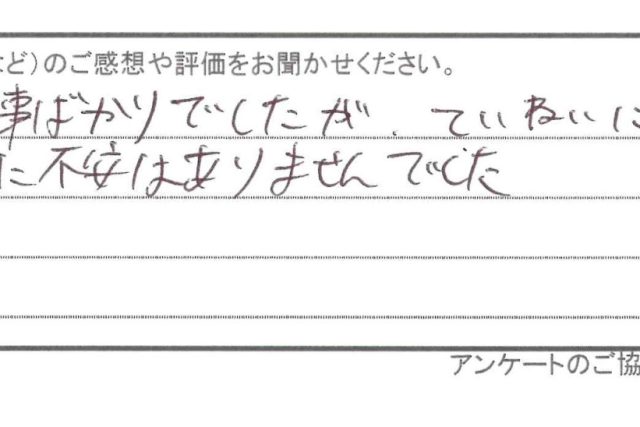 など)のご感想や評価をお聞かせください。
事ばかりでしたが、ていねいに
に不安はありませんでした
アンケートのご協